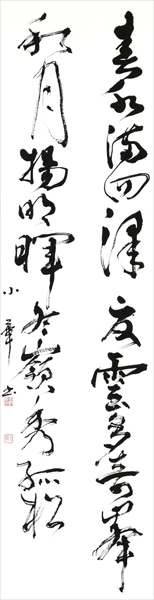 春水満四澤夏雲多奇峯
秋月揚明暉冬嶺秀孤松
小華书